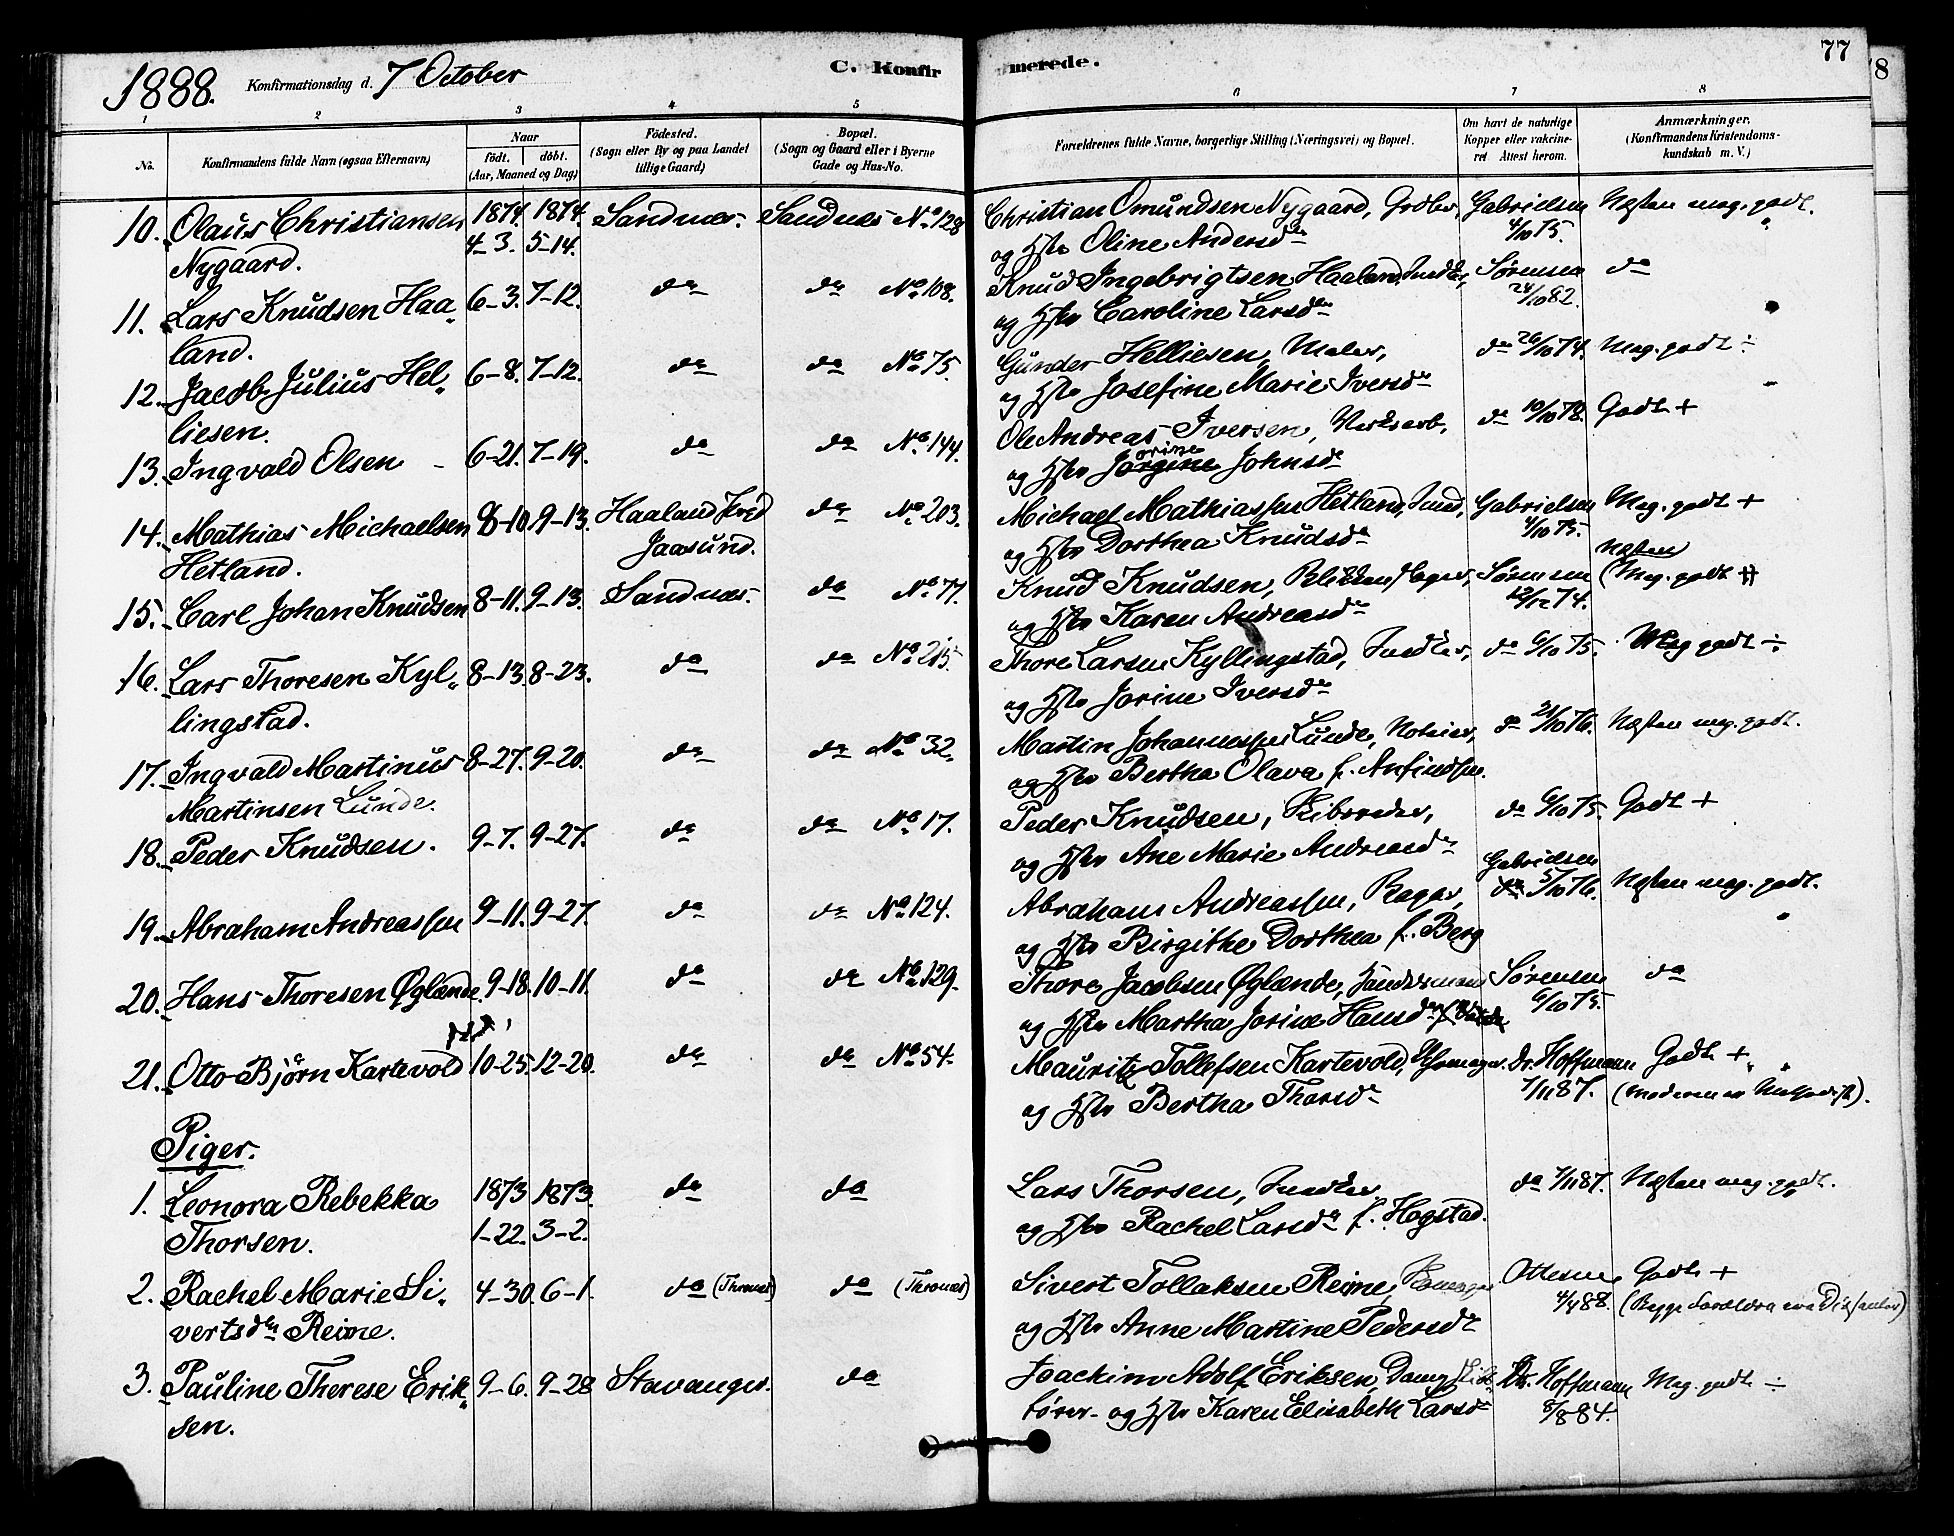 1888. Konfirmationsdag d. 7 October C. Konfir merede. 77
78
1 2 3 4 5 6 7 8
No. Konfirmandens fulde Navn (ogsaa Efternavn) Naar født. døbt. (Aar, Maaned og Dag) Fødested. (Sogn eller By og paa Landet tillige Gaard) Bopæl. (Sogn og Gaard eller i Byerne Gade og Hus-No. Forældrenes fulde Navne, borgerlige Stilling (Næringsvei) og Bopæl. Om havt de naturlige Kopper eller vakcineret Attest herom. Anmærkninger. (Konfirmandens Kristendomskundskab m. V.)
10. Olaus Christiansen 1874. 1874. Sandnæs. Sandnæs No 128 Christian Omundsen Nygaard, Gabrielsen Næsten meg. godt.
Nygaard. 4-3. 5-14. og Hstr Oline Andersdr 4/10 75.
11. Lars Knudsen Haa- 6-3. 7-12. do do No 108. Knud Ingebrigtsen Haaland, Sørensen do
land. og Hstr Caroline Larsdr 24/10 82.
12. Jacob Julius Hel- 6-8. 7-12. do do No 75. Gunder Helliesen, Maler, do 26/10 74. Meg. godt ÷
liesen. og Hstr Josefine Marie Iversdr
13. Ingvald Olsen 6-21. 7-19. do do No 144. Ole Andreas Iversen, do 10/10 78. Godt +
og Hstr Jorgine orine Johnsdr
14. Mathias Michaelsen 8-10. 9-13. Haaland do No 203. Michael Mathiassen Hetland, Gabrielsen Meg. godt +
Hetland. Jaasund. og Hstr Dorthea Knudsdr 4/10 75.
15. Carl Johan Knudsen 8-11. 9-13. Sandnæs. do No 77. Knud Knudsen, Sørensen Næsten (Meg. godt
og Hstr Karen Andreasdr
16. Lars Thoresen Kyl- 8-13. 8-23. do do No 215. Thore Larsen Kyllingstad, do 6/10 75. Meg godt ÷
lingstad. og Hstr Jorine Iversdr
17. Ingvald Martinus 8-27. 9-20. do do No 32. Martin Johannessen Lunde, do 21/10 76. Næsten meg. godt.
Martinsen Lunde. og Hstr Bertha Olava f. Anfindsen.
18. Peder Knudsen. 9-7. 9-27. do do No 17. Peder Knudsen, do 6/10 75. Godt +
og Hstr Ane Marie Andreasdr
19. Abraham Andreassen 9-11. 9-27. do do No 124. Abraham Andreassen, Bager, Gabrielsen 5/10 76. Næsten meg. godt.
og Hstr Birgithe Dorthea f. Berg
20. Hans Thoresen Øglænde 9-18. 10-11. do do No 129. Thore Jacobsen Øglænde, Sørensen do
og Hstr Martha Jorine Hansdr 6/10 75.
21. Otto Bjørn Kartevold 10-25. 12-20. do do No 54. Mauritz Tollefsen Kartevold, Dr. Hoffmann Godt +
og Hstr Bertha Thorsdr 7/11 87. (Moderen er Methodist).
Piger.
1. Leonora Rebekka 1873 1873. do do Lars Thorsen, do 7/11 87. Næsten meg. godt.
Thorsen. 1-22. 3-2. og Hstr Rachel Larsdr f. Hogstad.
2. Rachel Marie Si- 4-30. 6-1. do (Thronæs) do (Thronæs) Sivert Tollaksen Reime, Ottesen Godt +
vertsdtr Reime. og Hstr Anne Martine Pedersdr 4/4 88. (Begge Forældre ere Dissenter)
3. Pauline Therese Erik- 9-6. 9-28 Stavanger. do Joachim Adolf Eriksen, Dr. Hoffmann Meg. godt ÷
sen. fører og Hstr Karen Elisabeth Larsdr 8/8 84.